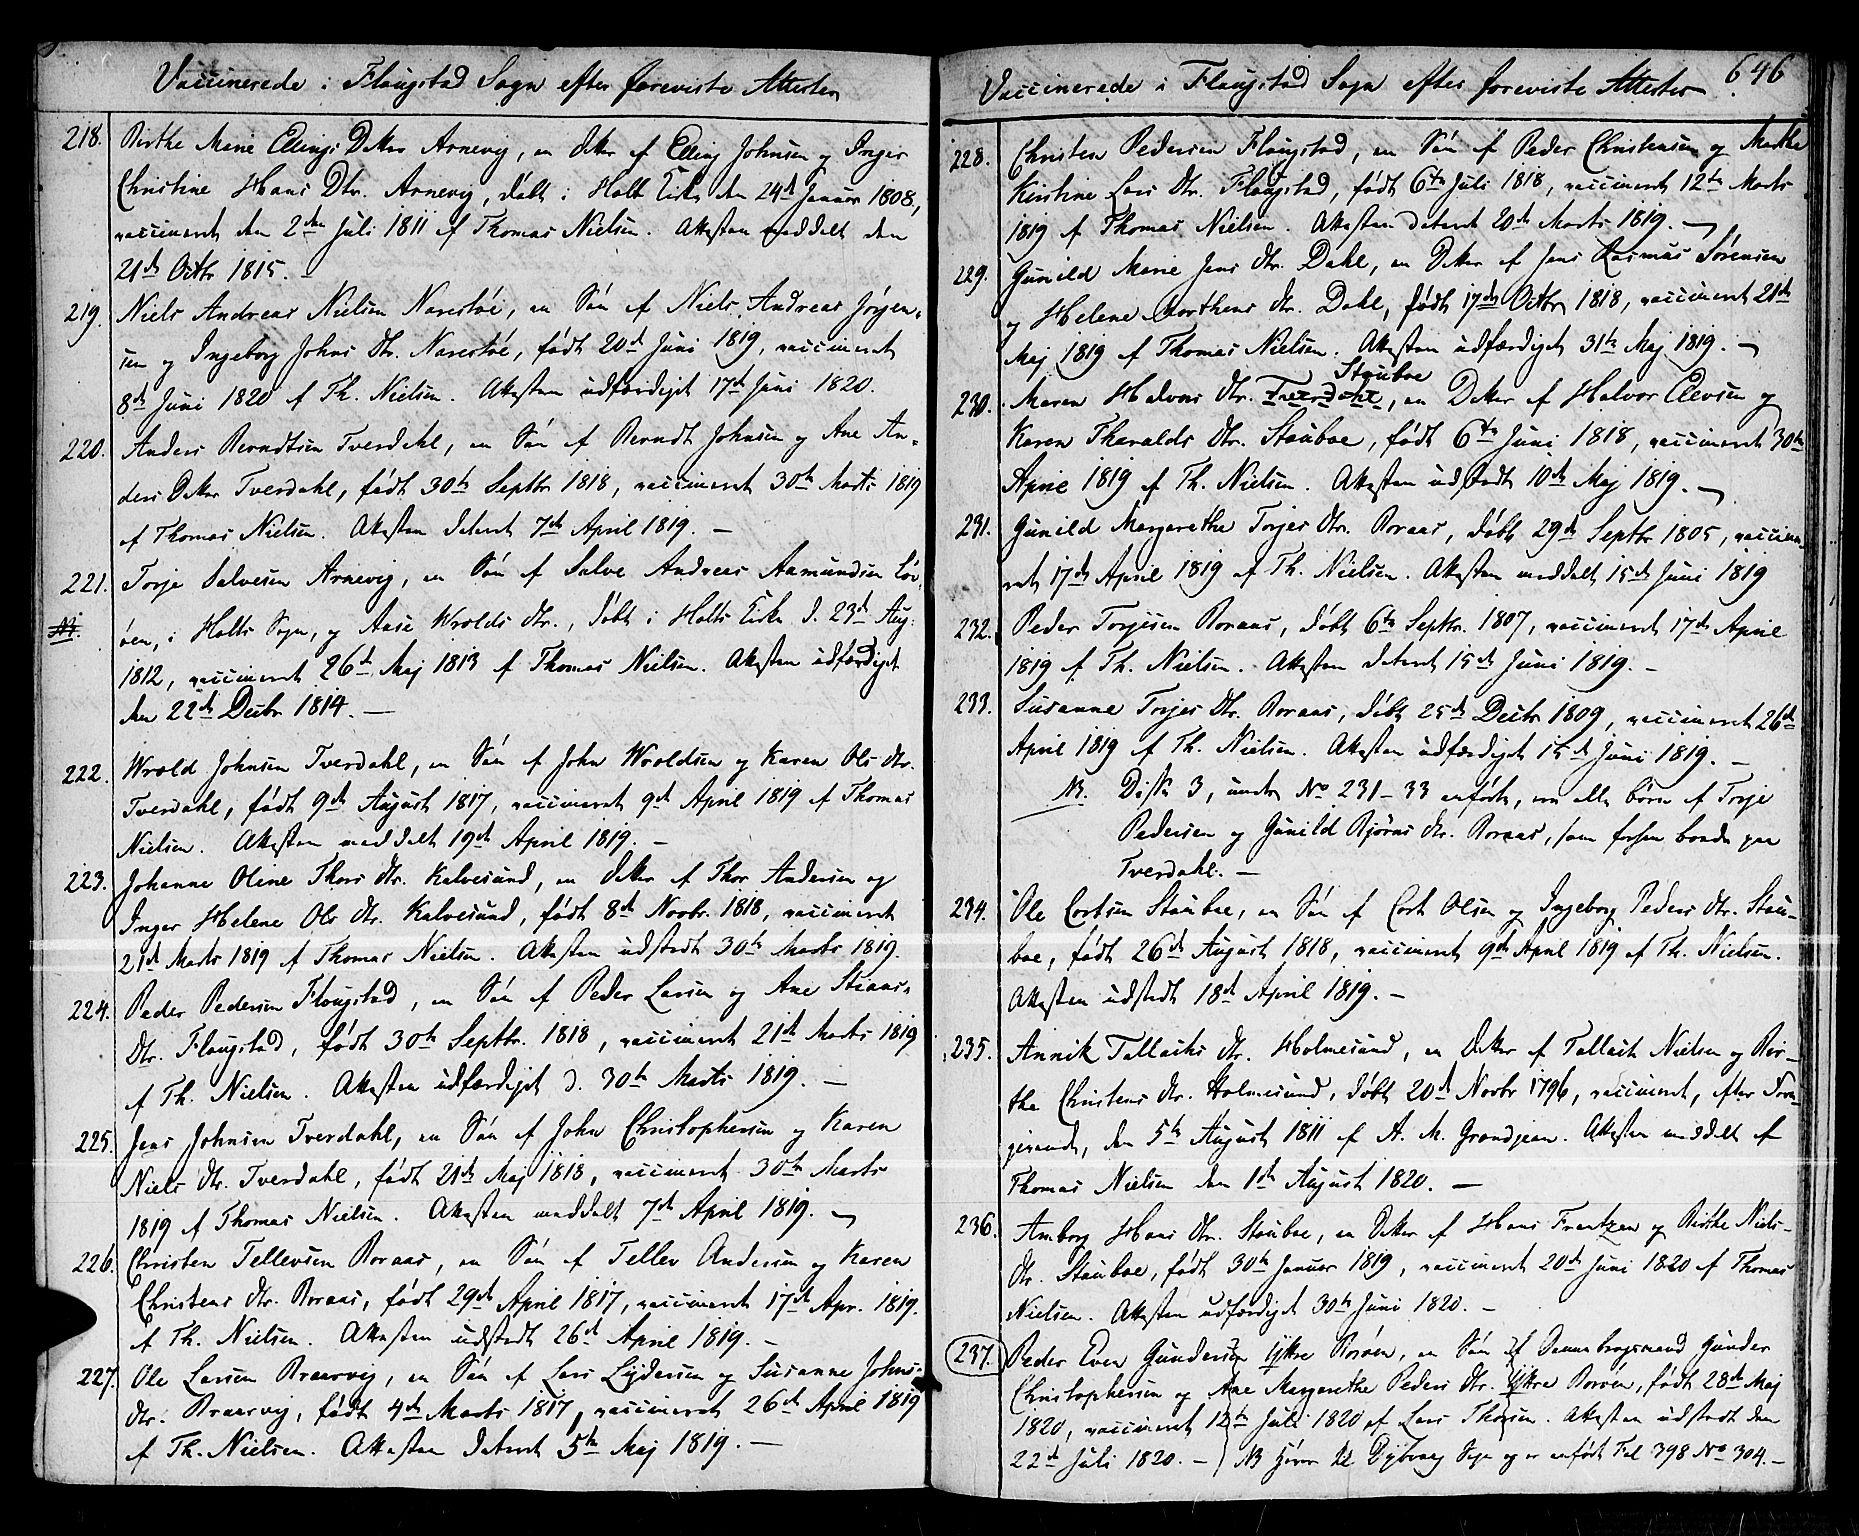 Vaccinerede i Flougstad Sogn efter foreviste Attester
218. Birthe Marie Ellings Datter Arnevig, en Datter af Elling Johnsen og Inger
Christine Hans Dtr. Arnevig, døbt i Holt Kirke den 24de Januar 1808,
vaccineret den 2den Juli 1811 af Thomas Nielsen. Attesten meddelt den
21de Octbr 1815. –
219. Niels Andreas Nielsen Narestøe, en Søn af Niels Andreas Jørgen-
sen og Ingeborg Johns Dtr. Narestøe, født 20de Juni 1819, vaccineret
8de Juni 1820 af Th. Nielsen. Attesten udfærdiget 17de Juni 1820.
220. Anders Berndtsen Tverdahl, en Søn af Berndt Johnsen og Ane An-
ders Datter Tverdahl, født 30te Septbr 1818, vaccineret 30te Marts 1819
af Thomas Nielsen. Attesten dateret 7de April 1819. –
221. Torje Salvesen Arnevig, en Søn af Salve Andreas Aamundsen Løv-
øen, i Holts Sogn, og Aase Wrolds Dtr., døbt i Holts Kirke d. 23de Aug.
1812, vaccineret 26de Maj 1813 af Thomas Nielsen. Attesten udfærdiget
den 22de Decbr 1814. –
222. Wrold Johnsen Tverdahl, en Søn af John Wroldsen og Karen Ols Dtr.
Tverdahl, født 9de August 1817, vaccineret 9de April 1819 af Thomas
Nielsen. Attesten meddelt 19de April 1819. –
223. Johanne Oline Thors Dtr. Kalvesund, en Datter af Thor Andersen og
Inger Helene Ols Dtr. Kalvesund, født 8de Novbr. 1818, vaccineret
21de Marts 1819 af Thomas Nielsen. Attesten udstedt 30te Marts 1819.
224. Peder Pedersen Flougstad, en Søn af Peder Larsen og Ane Stians-
Dtr. Flougstad, født 30te Septbr. 1818, vaccineret 21de Marts 1819
af Th. Nielsen. Attesten udfærdiget d. 30te Marts 1819. –
225. Jens Johnsen Tverdahl, en Søn af John Christophersen og Karen
Niels Dtr. Tverdahl, født 21de Maj 1818, vaccineret 30te Marts
1819 af Thomas Nielsen. Attesten meddelt 7de April 1819. –
226. Christen Tellevsen Boraas, en Søn af Tellev Andersen og Karen
Christens Dtr. Boraas, født 29de April 1817, vaccineret 17de Apr. 1819.
af Th. Nielsen. Attesten udstedt 26de April 1819. –
227. Ole Larsen Braarvig, en Søn af Lars Lydersen og Susanne Johns-
Dtr. Braarvig, født 4de Marts 1817, vaccineret 26de April 1819
af Th. Nielsen. Attesten dateret 5te Maj 1819. –
646
Vaccinerede i Flougstad Sogn efter foreviste Attester
228. Christen Pedersen Flougstad, en Søn af Peder Christensen og Marthe
Kirstine Lars Dtr. Flougstad, født 6te Juli 1818, vaccineret 12te Marts
1819 af Thomas Nielsen. Attesten dateret 20de Marts 1819. –
229. Gunild Marie Jens Dtr. Dahl, en Datter af Jens Rasmus Sørensen
og Helene Morthens Dtr. Dahl, født 17de Octbr 1818, vaccineret 21de
Maj 1819 af Thomas Nielsen. Attesten udfærdiget 31te Maj 1819. –
Stauboe
230. Maren Halvors Dtr. Tverdahl, en Datter af Halvor Elevsen og
Karen Tharalds Dtr. Stauboe, født 6te Juni 1818, vaccineret 30te
April 1819 af Th. Nielsen. Attesten udstedt 10de Maj 1819. –
231. Gunild Margarethe Torjes Dtr. Boraas, døbt 29de Septbr 1805, vaccine-
ret 17de April 1819 af Th. Nielsen. Attesten meddelt 15de Juni 1819
232. Peder Torjesen Boraas, døbt 6te Septbr. 1807, vaccineret 17de April
1819 af Th. Nielsen. Attesten dateret 15de Juni 1819. –
233. Susanne Torjes Dtr. Boraas, døbt 25de Decbr 1809, vaccineret 26de
April 1819 af Th. Nielsen. Attesten udfærdiget 15de Juni 1819. –
NB. Disse 3, under No 231–33 anførte, ere alle børn af Torje
Pedersen og Gunild Bjørns Dtr. Boraas, som forhen boede paa
Tverdahl. –
234. Ole Cortsen Stauboe, en Søn af Cort Olsen og Ingeborg Peders Dtr. Stau-
boe, født 26de August 1818, vaccineret 9de April 1819 af Th. Nielsen.
Attesten udstedt 18de April 1819. –
235. Annik Tallachs Dtr. Holmesund, en Datter af Tallach Nielsen og Bir-
the Christens Dtr. Holmesund, døbt 20de Novbr 1796, vaccineret, efter
givende, den 5te August 1811 af A. M. Grandjean. Attesten meddelt af
Thomas Nielsen den 1ste August 1820. –
236. Amborg Hans Dtr. Stauboe, en Datter af Hans Frantzen og Birthe Niels-
Dtr. Stauboe, født 30te Januar 1819, vaccineret 20de Juni 1820 af Thomas
Nielsen. Attesten udfærdiget 30te Juni 1820. –
237. Peder Even Gundersen Yttre Borøen, en Søn af Dannebrogsmand Gunder
Christophersen og Ane Margarethe Peders Dtr. Yttre Borøen, født 28de Maj
1820, vaccineret 12te Juli 1820 af Lars Thorsen. Attesten udstedt den
22de Juli 1820. – NB hører til Dybvaag Sogn og er anført Fol 398 No 304. –